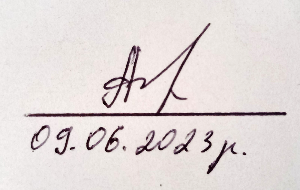 09.06.2023 р.